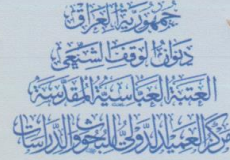 جمهورية العراق
ديوان الوقف الشيعي
العتبة العباسية المقدسة
مركز العميد الدولي للبحوث والدراسات